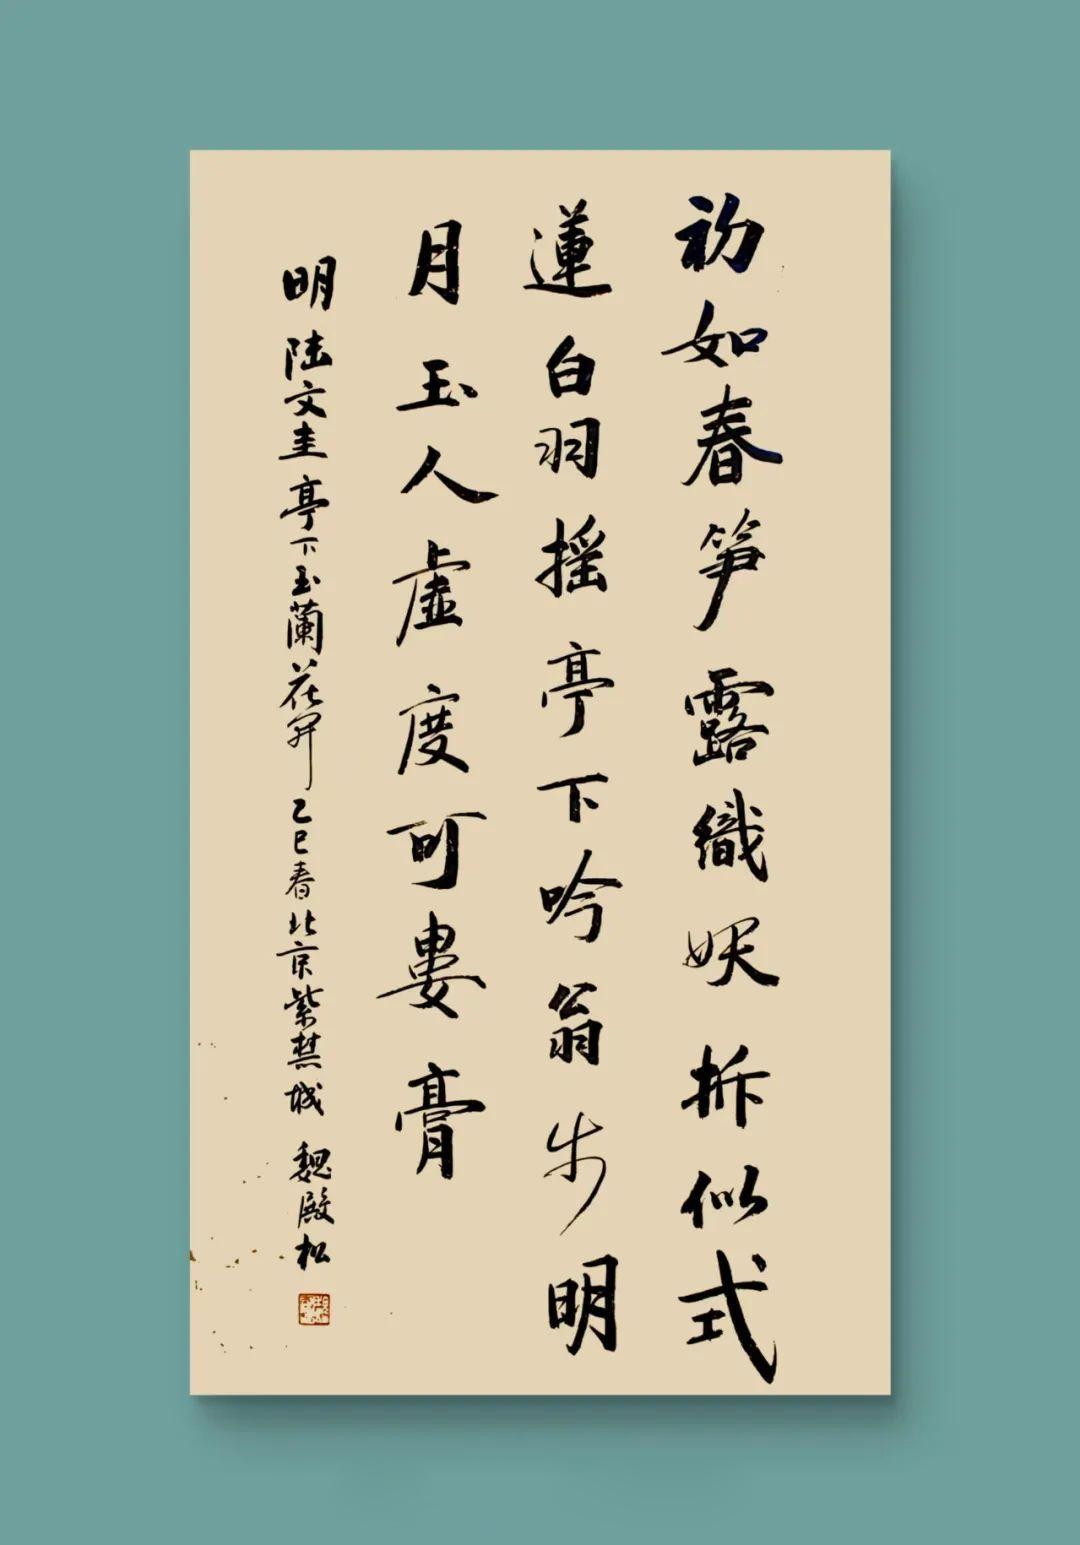 初如春笋露纖妖拆似式
蓮白羽摇亭下吟翁步明
月玉人虚度可婁膏
明陆文圭亭下玉蘭花开乙巳春北京紫禁城魏殿松